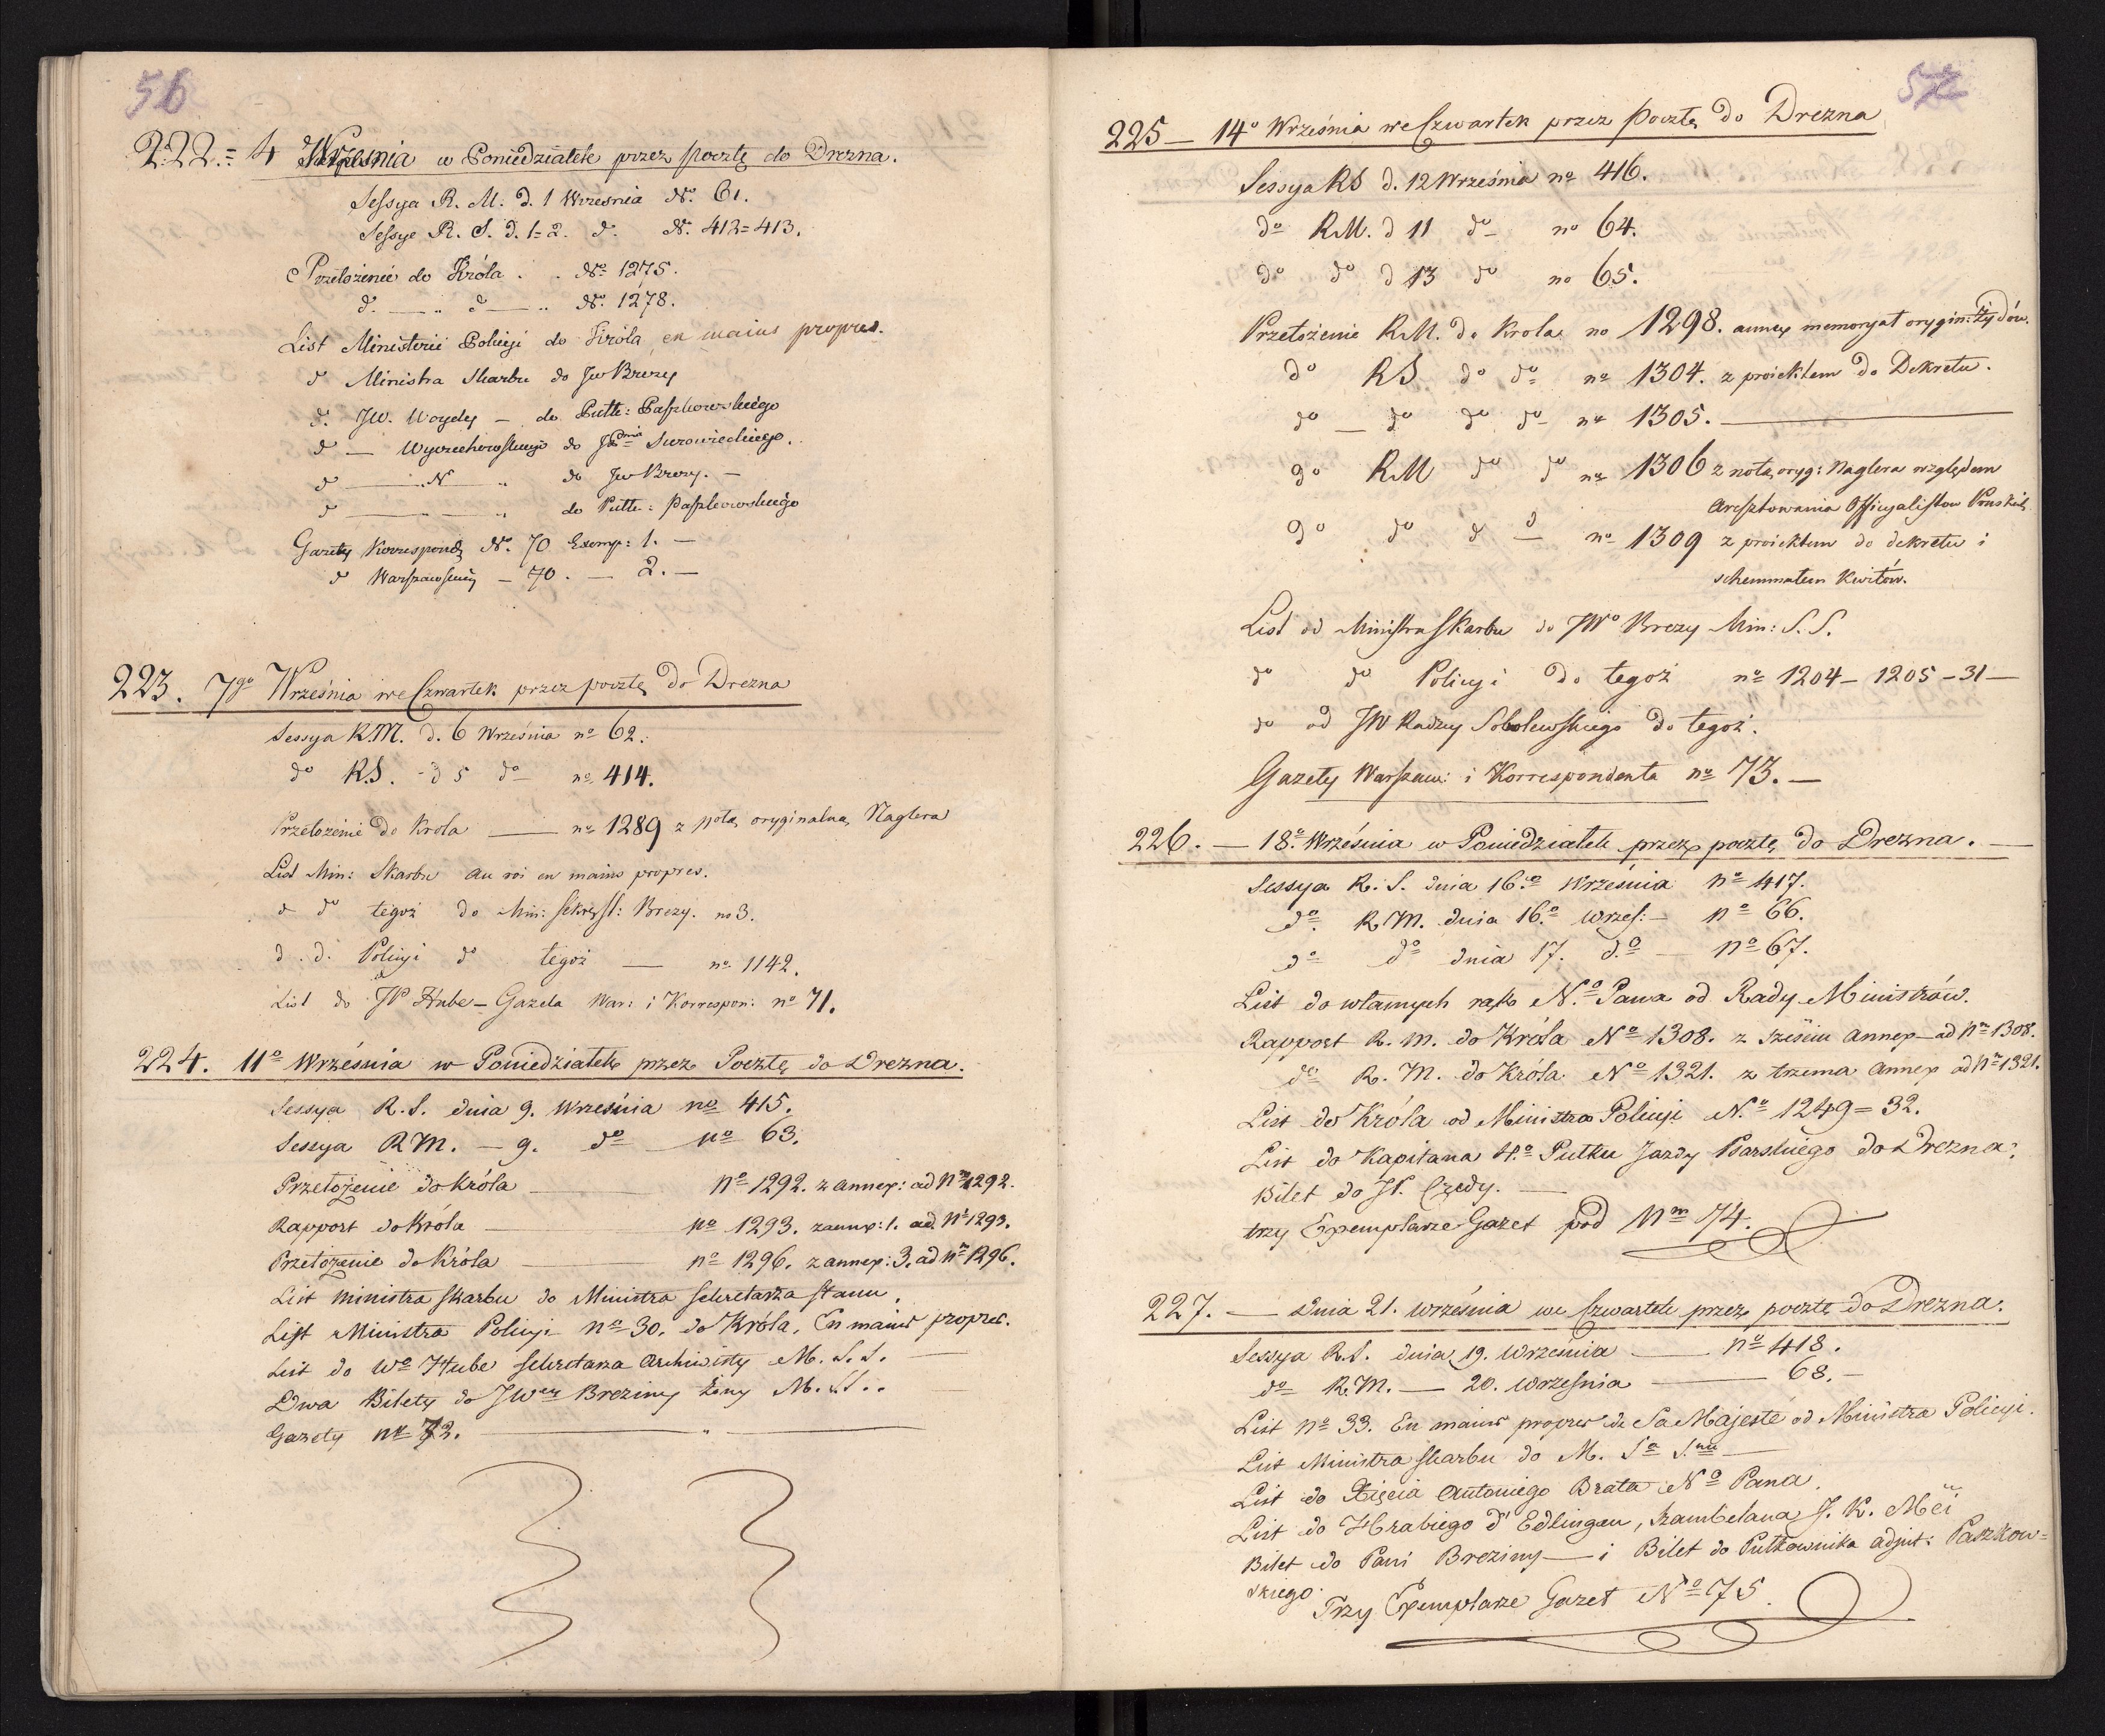 56
222.= 4 Września w Poniedziałek przez pocztę do Drezna.
Sessya R. M. d. 1 Wrzesnia No. 61.
Sessye R. S. d. 1=2. do. No. 412=413.
Przełożenie do Króla . . No 1275.
do. — „ do — „ No. 1278.
List Ministerii Policyi do Króla en mains propres.
do Ministra Skarbu do Jw Brezy
do. JW. Woydy — do Pułk: Paszkowskiego
do — Wyczechowskiego do JP Surowieckiego.
do — „ N „ do Jw Brezy. —
do — „ „ do Pułk: Paszkowskiego
Gazety Korrespond No. 70 Exemp: 1. —
do Warszawskiey — 70. — 2. —
223. 7go Września we Czwartek przez pocztę do Drezna
Sessya R.M. d. 6 Września no 62.
do RS. d 5 do no. 414.
Przełożenie do Krola — no 1289 z notą oryginalną Naglera
List Min: Skarbu au roi en mains propres.
d do tegoż do Min: Sekr St: Brezy. no 3.
d. d. Policyi do tegoż — no 1142.
List do JP Hube — Gazeta War: i Korrespon: no 71.
224. 11o Września w Poniedziałek przez Pocztę do Drezna.
Sessya R.S. dnia 9. Września no 415.
Sessya RM. — 9. do no 63.
Przełożenie do Króla — no 1292. z annex: ad Nm 1292.
Rapport do Króla — no 1293. z annex: 1. ad. Nm 1293.
Przełożenie do Króla — no 1296. z annex: 3. ad nm 1296.
List Ministra Skarbu do Ministra Sekretarza Stanu.
List Ministra Policyi no 30. do Króla. En mains propres.
List do Wo Hube Sekretarza Archiwisty M. S. S. —
Dwa Bilety do JWey Breziny żony M. S. S..
Gazety no 72. — „ —
57
225 — 14o Września we Czwartek przez Pocztę do Drezna
Sessya RS d. 12 Września no 416.
do RM. d 11 do no 64.
do do d 13 do no 65.
Przełożenie RM. do Krola no 1298. annex memoryał orygin: Żydów.
do RS do do no 1304. z proiektem do Dekretu.
do — do do do no 1305. —
do RM do do no 1306 z notą oryg: Naglera względem
Aresztowania Officyalistow Pruskich
do do d d no 1309 z proiektem do dekretu i
schemmatem Kwitów.
List od Ministra Skarbu do JWo Brezy Min: S. S.
do do Policyi do tegoż no 1204 — 1205 — 31 —
do od JW Radzcy Sobolewskiego do tegoż.
Gazety Warszaw: i Korrespondenta no 73. —
226. — 18.o Września w Poniedziałek przez pocztę do Drezna. —
Sessya R. S. dnia 16.o Września no 417.
do. R.M. dnia 16.o Wrześ: — no 66.
do do dnia 17. d.o — no 67.
List do własnych rąk N.o Pana od Rady Ministrów.
Rapport R. M. do Króla No 1308. z sześciu annex — ad Nm 1308.
do R. M. do Króla No 1321. z trzema annex ad Nm 1321.
List do Króla od Ministra Policyi N.o 1249 = 32.
List do Kapitana 4.o Pułku Jazdy Barskiego do Drezna.
Bilet do JP. Czędy. —
trzy Exemplarze Gazet pod Nm 74.
227. — Dnia 21. Września we Czwartek przez pocztę do Drezna.
Sessya R.S. dnia 19. Września — no 418.
do R.M. — 20. Września — 68. —
List no 33. En mains propres de Sa Majesté od Ministra Policyi.
List Ministra Skarbu do M. Sa S.nu —
List do Xięcia Antoniego Brata No Pana.
List do Hrabiego d'Edlingen, Szambelana J. K. Mci
Bilet do Pani Breziny — i Bilet do Pułkownika adjut: Paszkow=
skiego. Trzy Exemplarze Gazet No 75.